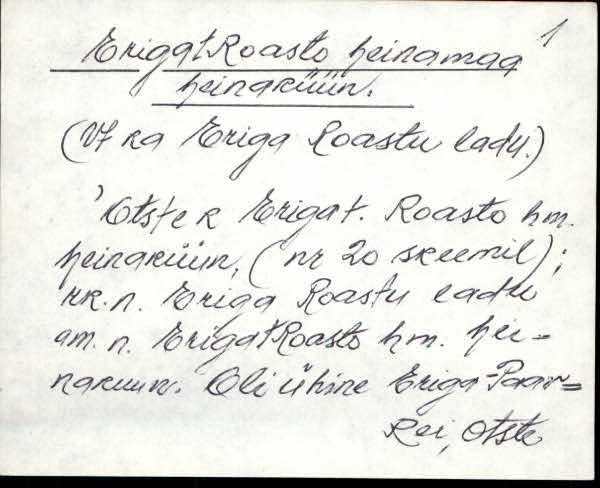 1
Erigat Roasto heinamaa
heinaküün.
(Vt ka Eriga Roastu ladu.)
'Otste k Erigat. Roasto hm.
heinaküün, (nr 20 skeemil);
rk. n. Eriga Roastu ladu
am. n. Erigat Roasto hm. hei-
nakuun. Oli ühine Eriga-Paar=
Rei, Otste